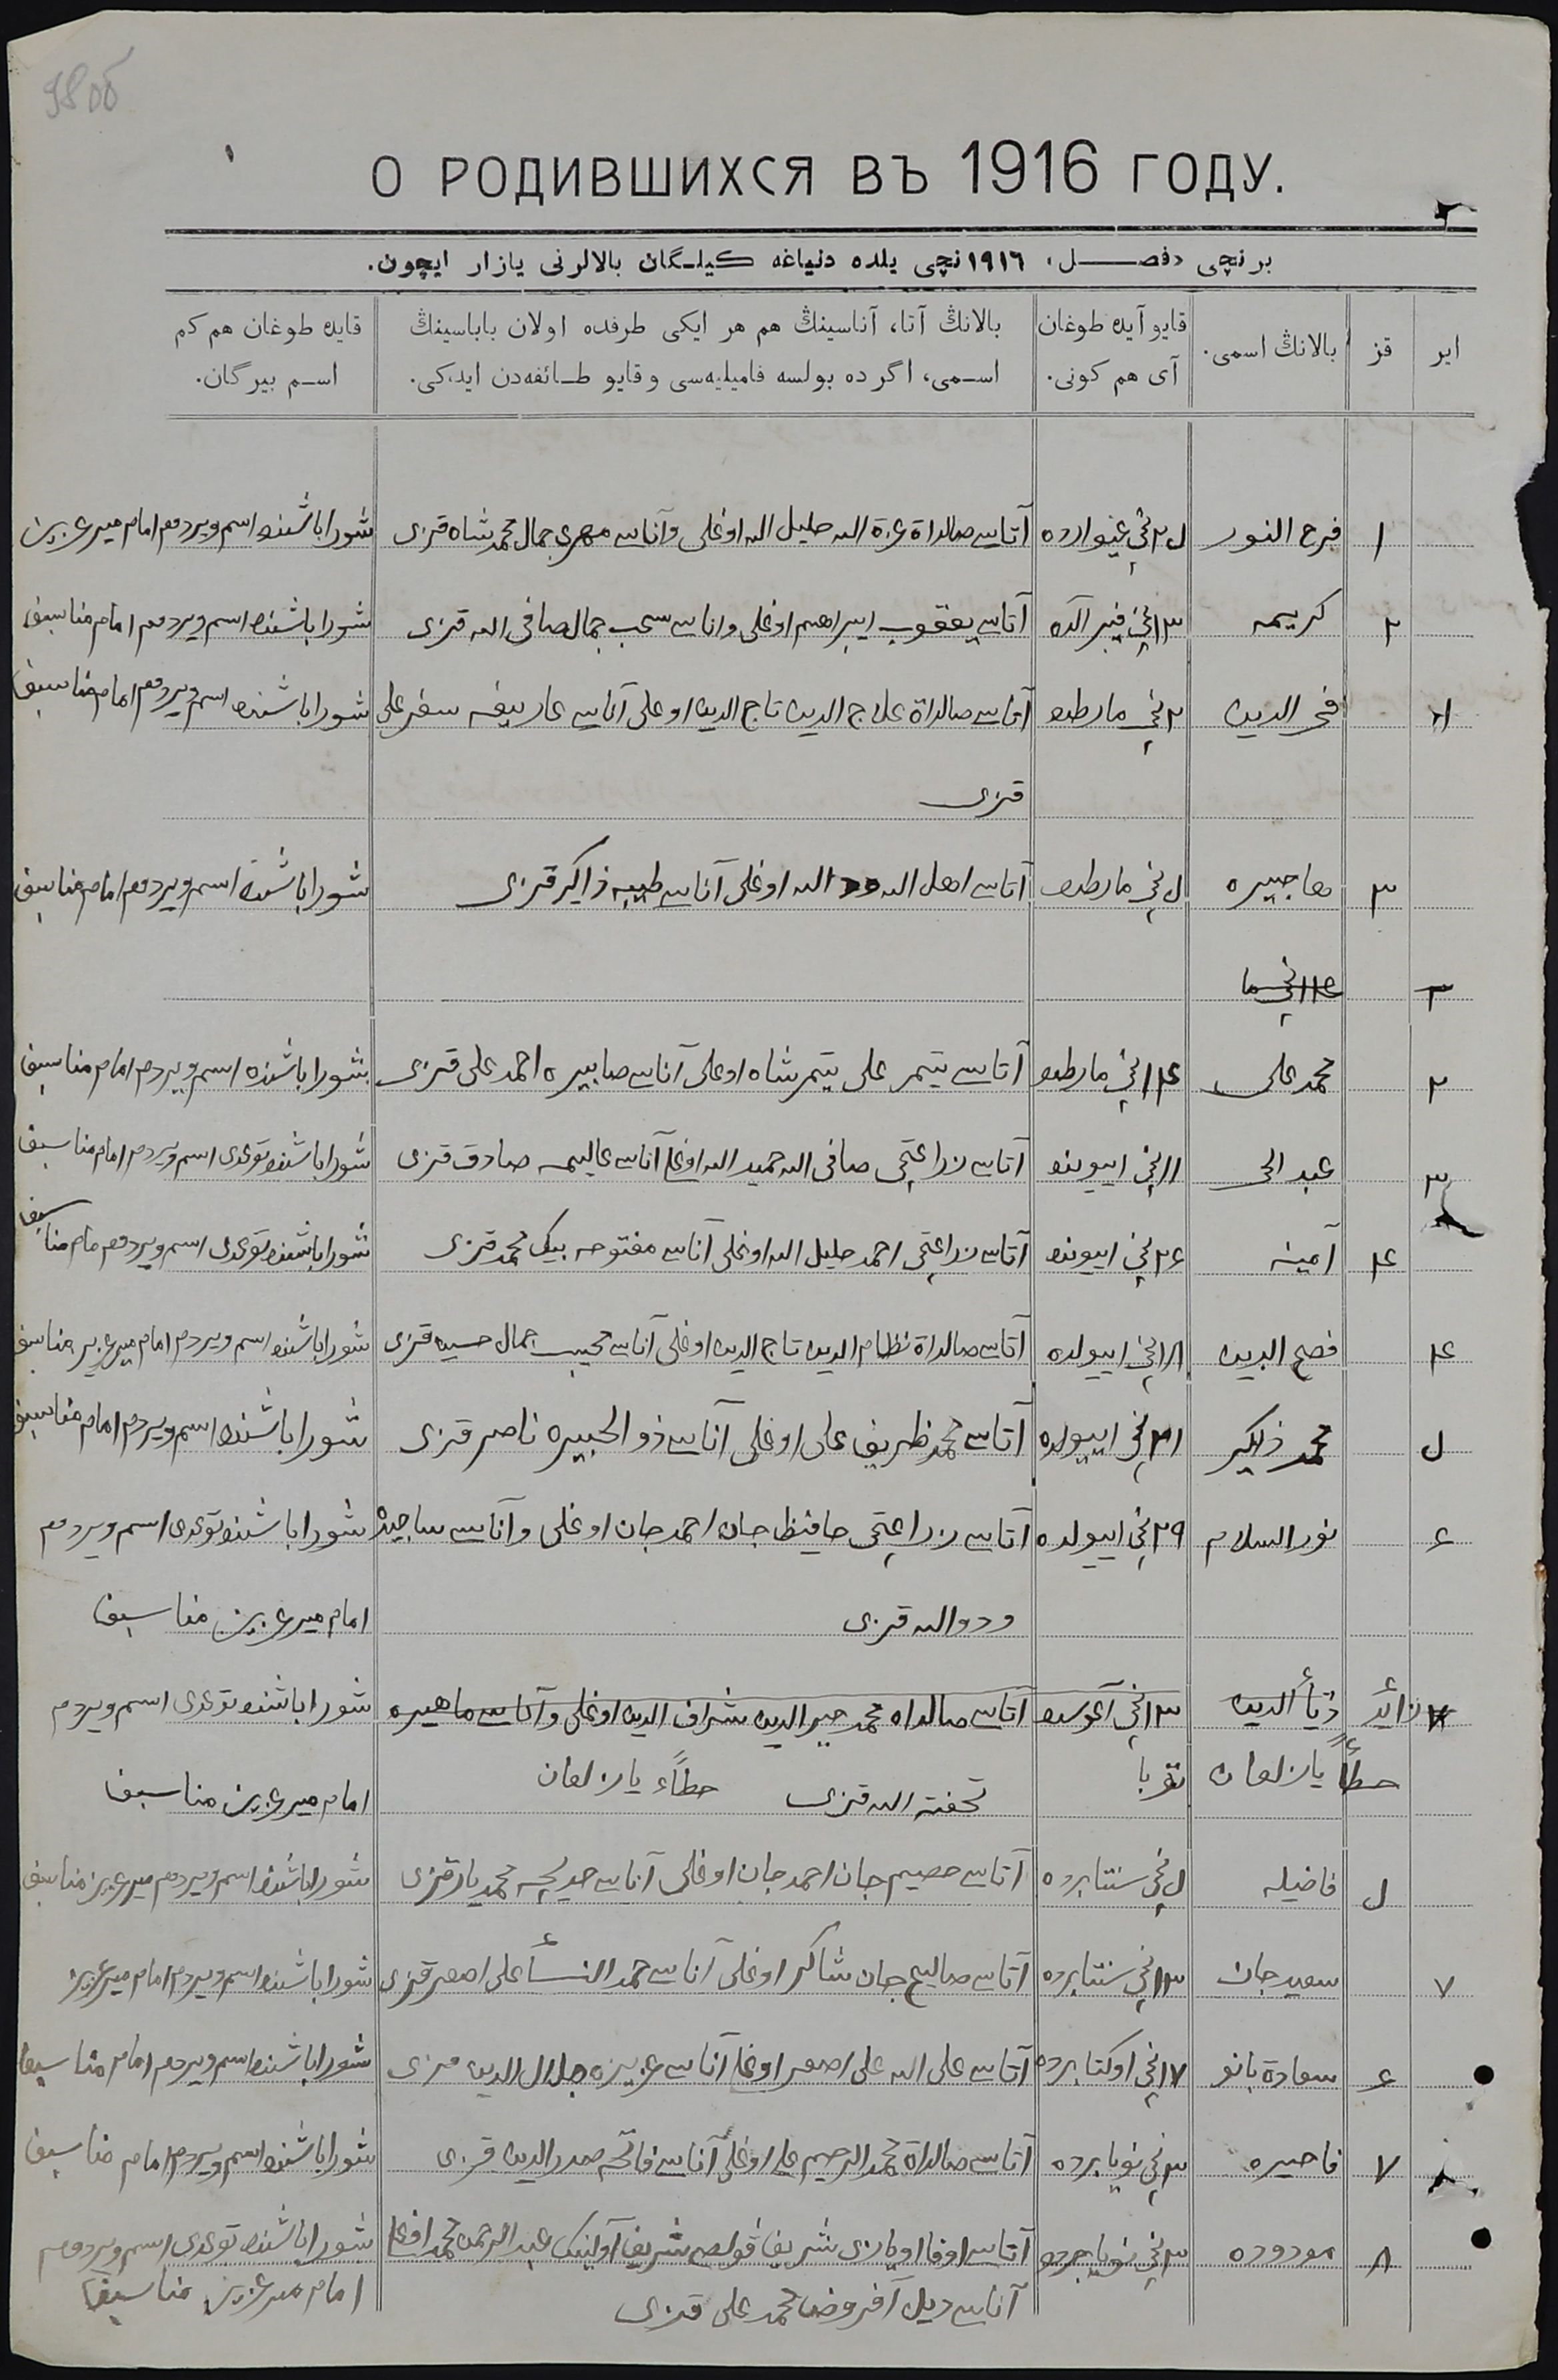 98 об
О РОДИВШИХСЯ ВЪ 1916 ГОДУ.
برنچی «فصل» ١٩١٦ نچی یلده دنیاغه كیلگان بالالرنی یازار ایچون.
ایر
قز
بالانڭ اسمی.
قایو آیده طوغان آی هم كونی.
بالانڭ آتا، آناسینڭ هم هر ایكی طرفده اولان باباسینڭ اسمی، اگر ده بولسه فامیلیه‌سی و قایو طائفه‌دن ایدیكی.
قایده طوغان هم كم اسم بیرگان.
١ فرح النور ل٢نچی غینوارده آتاسی صالداة عزة الله خلیل الله اوغلی وآناسی مهری جمال محمد شاه قزی شوراباشنده اسم ویردوم امام میرعزیز
٢ كریمه ١٣نچی فیبرالده آتاسی یعقوب ابیراهیم اوغلی واناسی جمال صافی الله قزی شوراباشنده اسم ویردوم امام مناسیف
١ فخر الدین ٢نچی مارطده آتاسی صالداة علاج الدین تاج الدین اوغلی آناسی عاریفه سفرعلی شوراباشنده اسم ویردوم امام مناسیف
قزی
٣ هاجیره ل نچی مارطده آتاسی اهل الله الله اوغلی آناسی طیبه ذاكیر قزی شوراباشنده اسم ویردوم امام مناسیف
٢ ١٤نچی ما
٢ محمد علی ١٤نچی مارطده آتاسی یتمر علی یتمر شاه اوغلی آناسی صابیره احمد علی قزی شوراباشنده اسم ویردم امام مناسیف
٣ عبد الحی ١١نچی اییونده آتاسی زراعتچی صافی الله حمید الله اوغلی آناسی عالیمه صادق قزی شوراباشنده توغدی اسم ویردم امام مناسیف
٤ آمینه ٢٦نچی اییونده آتاسی زراعتچی احمد خلیل الله اوغلی آناسی مفتوحه بیك محمد قزی شوراباشنده توغدی اسم ویردوم امام مناسیف
٤ فصح الدین ١٨نچی اییولده آتاسی صالداة نظام الدین تاج الدین اوغلی آناسی محیب جمال حسین قزی شوراباشنده اسم ویردم امام میرعزیز مناسیف
ل محمد ذاكیر ٢١نچی اییولده آتاسی محمد ظریف علی اوغلی آناسی ذو الحبیره ناصر قزی شوراباشنده اسم ویردم امام مناسیف
٦ نور السلام ٢٩نچی اییولده آتاسی زراعتچی حافیظ جان احمد جان اوغلی وآناسی ساجیده شوراباشنده توغدی اسم ویردوم
ودود الله قزی امام میرعزیز مناسیف
٧ زائد ذیأ الدین ١٣نچی آغوسده آتاسی صالداه محمد خیر الدین شراف الدین اوغلی وآناسی ماهیره شوراباشنده توغدی اسم ویردم
خطاًء یازلغان تحفة الله قزی خطاًء یازلغان امام میرعزیز مناسیف
ل فاضیله ل نچی سنتابرده آتاسی حصیم جان احمد جان اوغلی آناسی خدیجه محمدیار قزی شوراباشنده اسم ویردوم میرعزیز مناسیف
٧ سعید جان ١٣نچی سنتابرده آتاسی صالیح جان شاكر اوغلی آناسی حمد النسأ علی اصغر قزی شوراباشنده اسم ویردم امام میرعزیز
٦ سعادة بانو ١٧نچی اوكتابرده آتاسی علی الله علی اصغر اوغلی آناسی عزیزه جلال الدین قزی شوراباشنده اسم ویردوم امام مناسیف
٧ فاخیره ٣نچی نویابرده آتاسی صالداة محمد الرحیم علی اوغلی آناسی فاتحه صدر الدین قزی شوراباشنده اسم ویردم امام مناسیف
٨ مودوده ٣نچی نویابرده آتاسی اوفا شریف عبد الرحمن محمد اوغلی شوراباشنده توغدی اسم ویردوم
آناسی دیل آفروض محمد علی قزی امام میرعزیز مناسیف